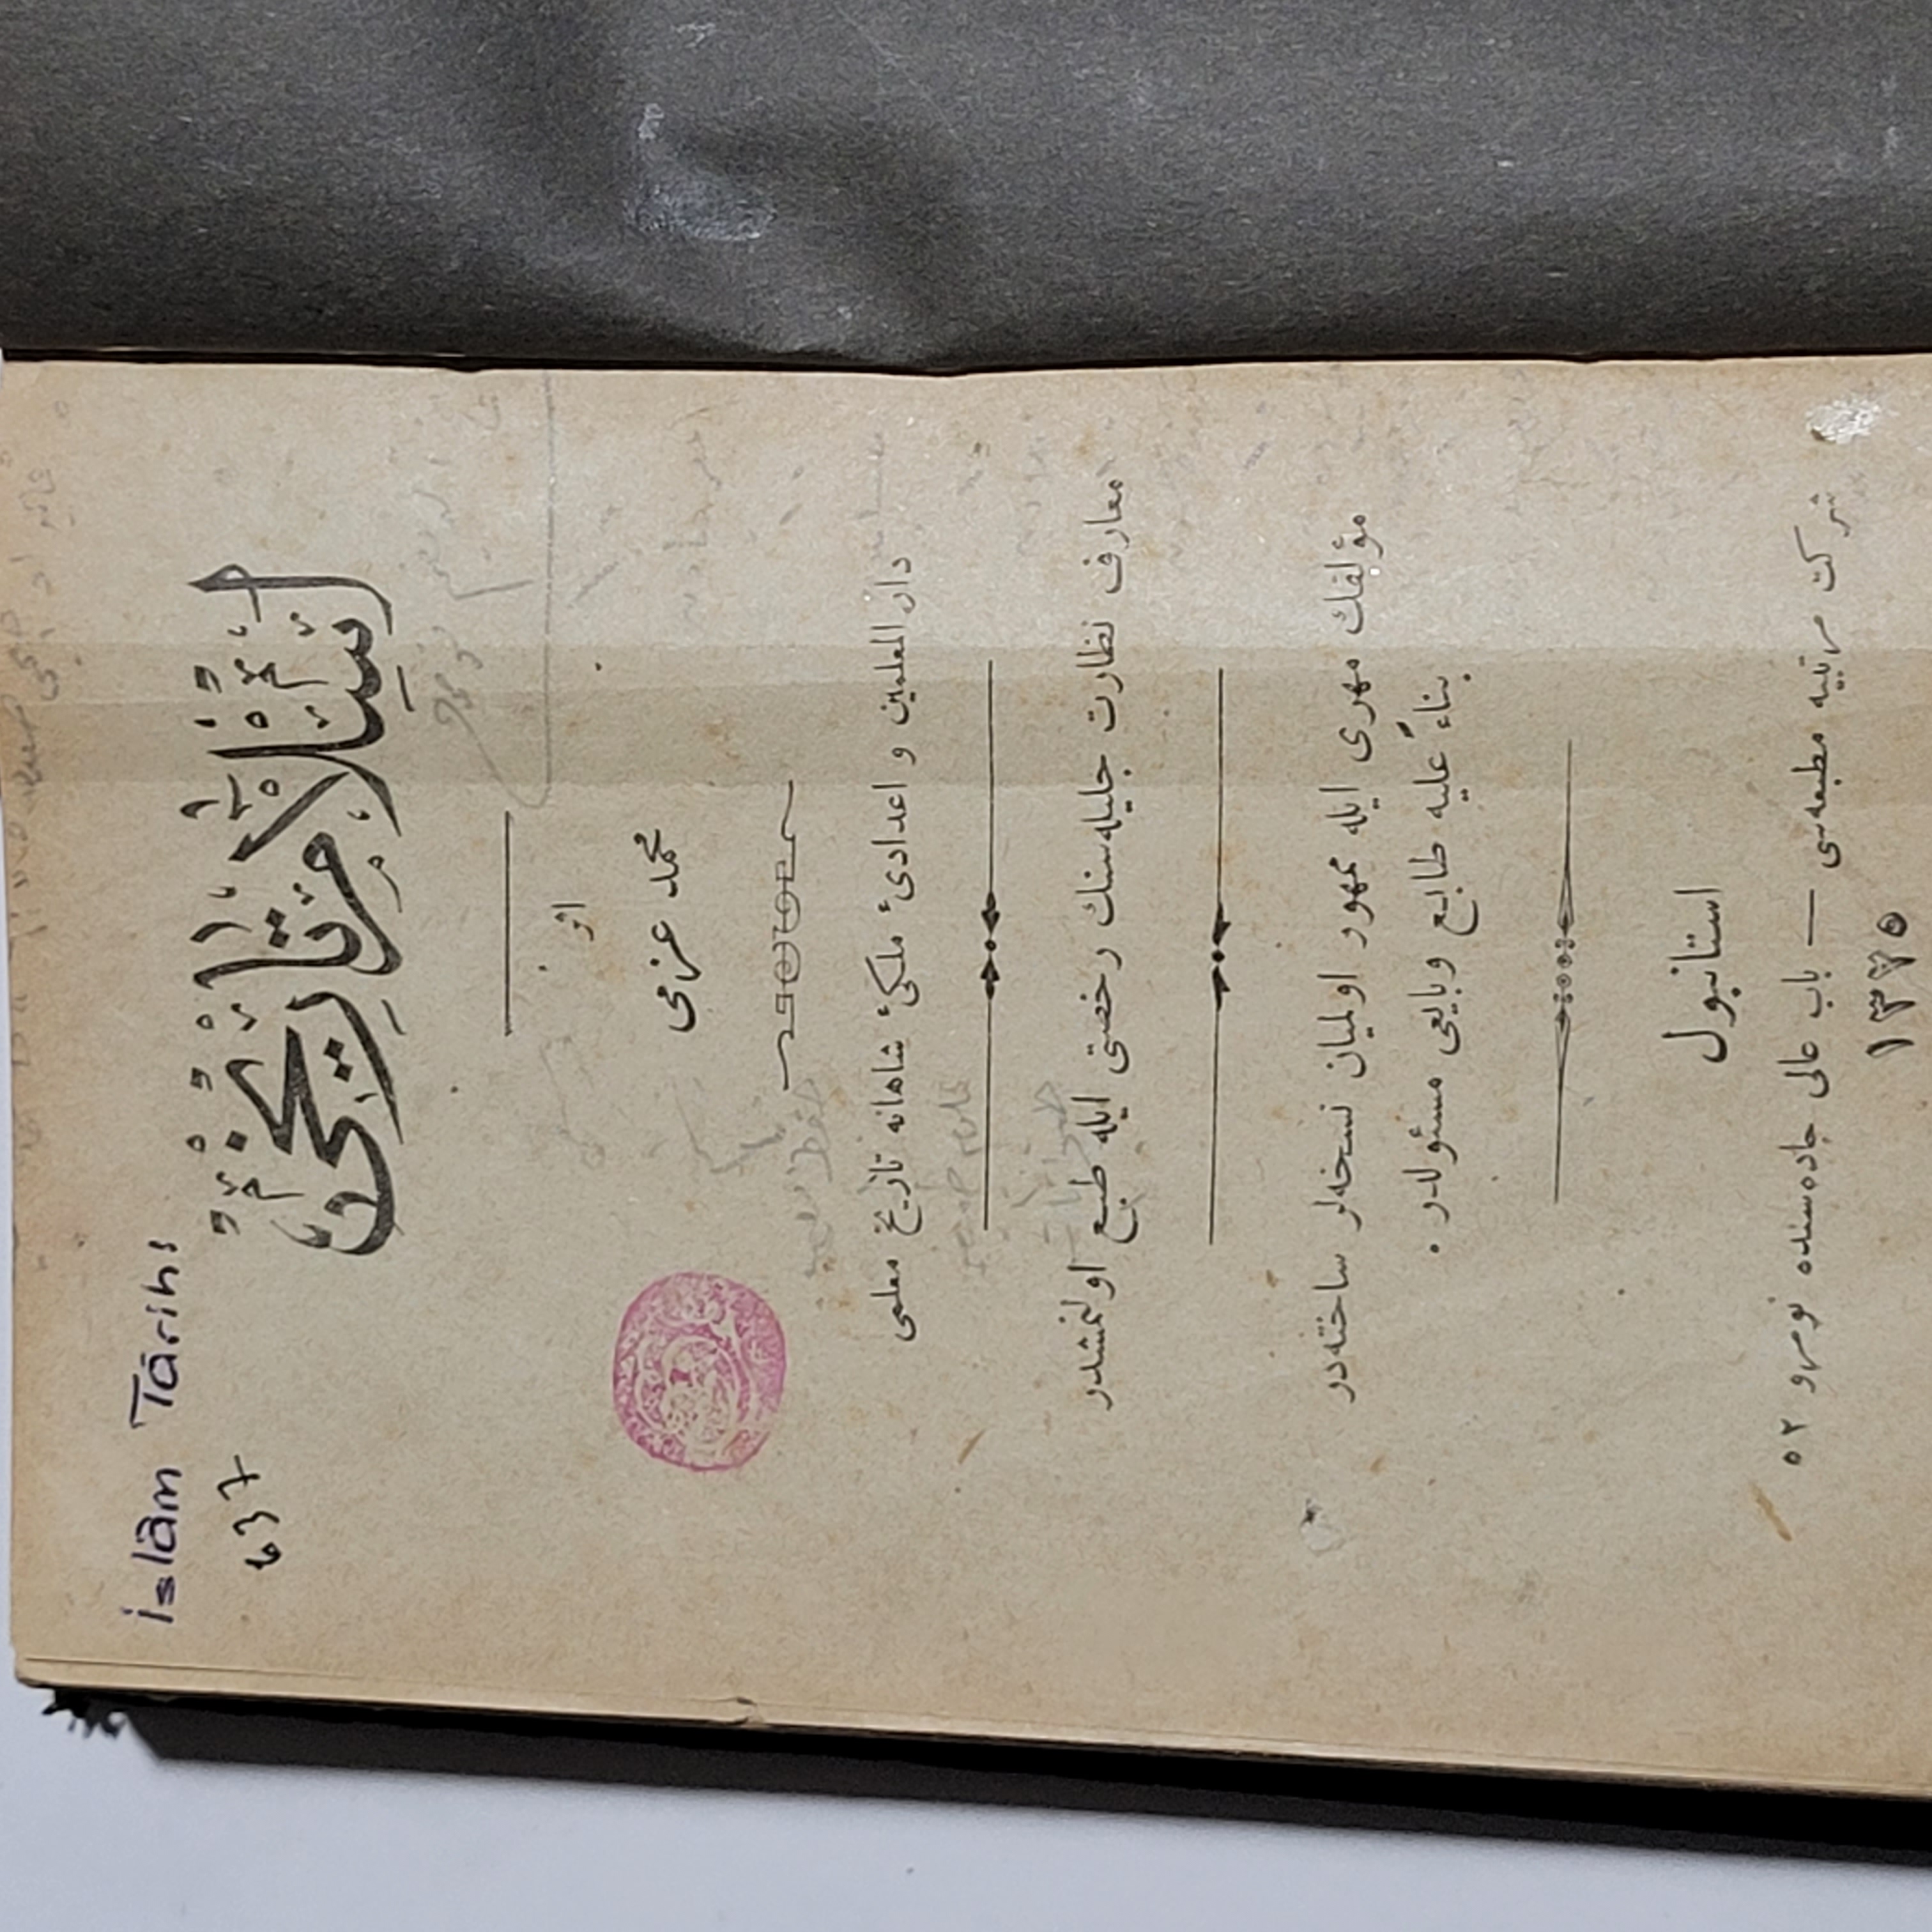 islâm Târihi
637
اسلام تاريخى
اثر
محمد عزمى
دار المعلمين و اعدادئ ملكئ شاهانه تاريخ معلمى
معارف نظارت جليله‌سنك رخصتى ايله طبع اولنمشدر
مؤلفك مهرى ايله ممهور اولميان نسخه‌لر ساخته‌در
بناءً عليه طابع وبايعى مسئولدر .
استانبول
شركت مرتبيه مطبعه‌سى — باب عالى جاده‌سنده نومرو ٥٢
١٣٢٥